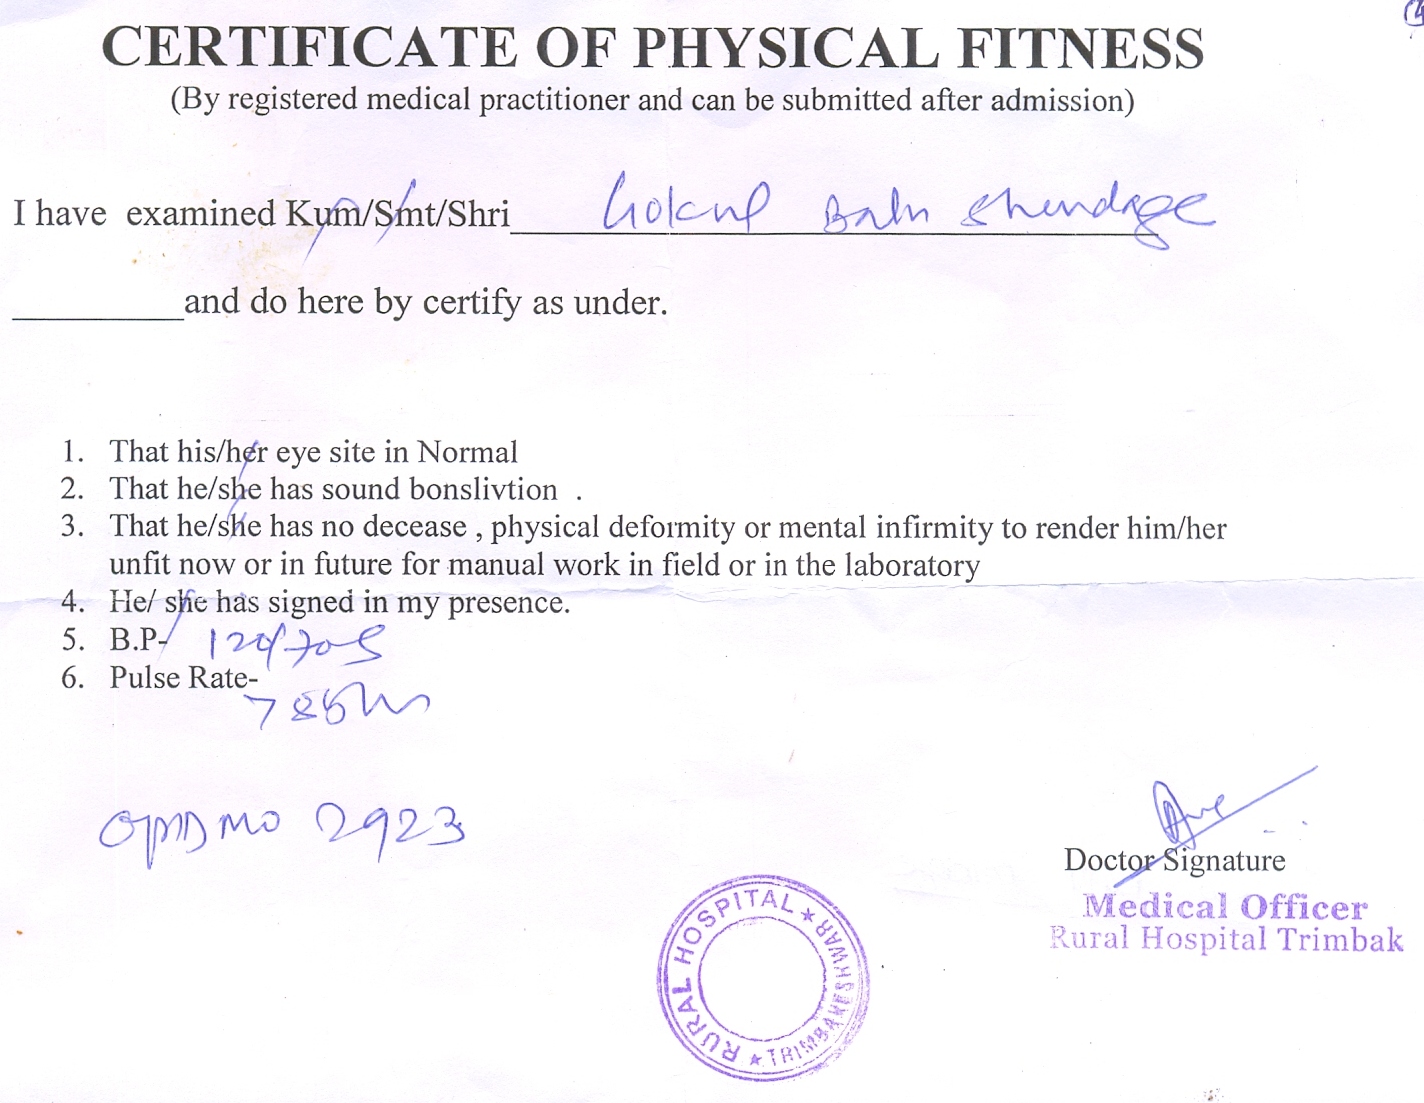 CERTIFICATE OF PHYSICAL FITNESS
(By registered medical practitioner and can be submitted after admission)
I have examined Kum/Smt/Shri Gokul Balu Shendage
and do here by certify as under.
1. That his/her eye site in Normal
2. That he/she has sound bonslivtion .
3. That he/she has no decease , physical deformity or mental infirmity to render him/her
unfit now or in future for manual work in field or in the laboratory
4. He/ she has signed in my presence.
5. B.P- 120/70
6. Pulse Rate-
78
OPD NO 2923
Doctor Signature
Medical Officer
Rural Hospital Trimbak
RURAL HOSPITAL ★ TRIMBAKESHWAR ★